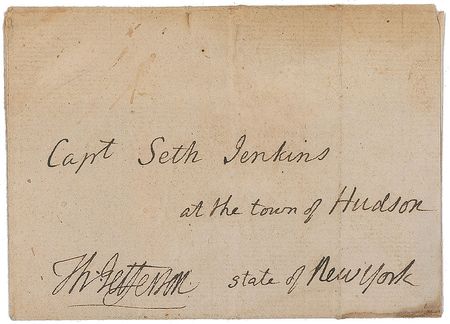 Capt Seth Jenkins
at the town of Hudson
Th: Jefferson. state of New York